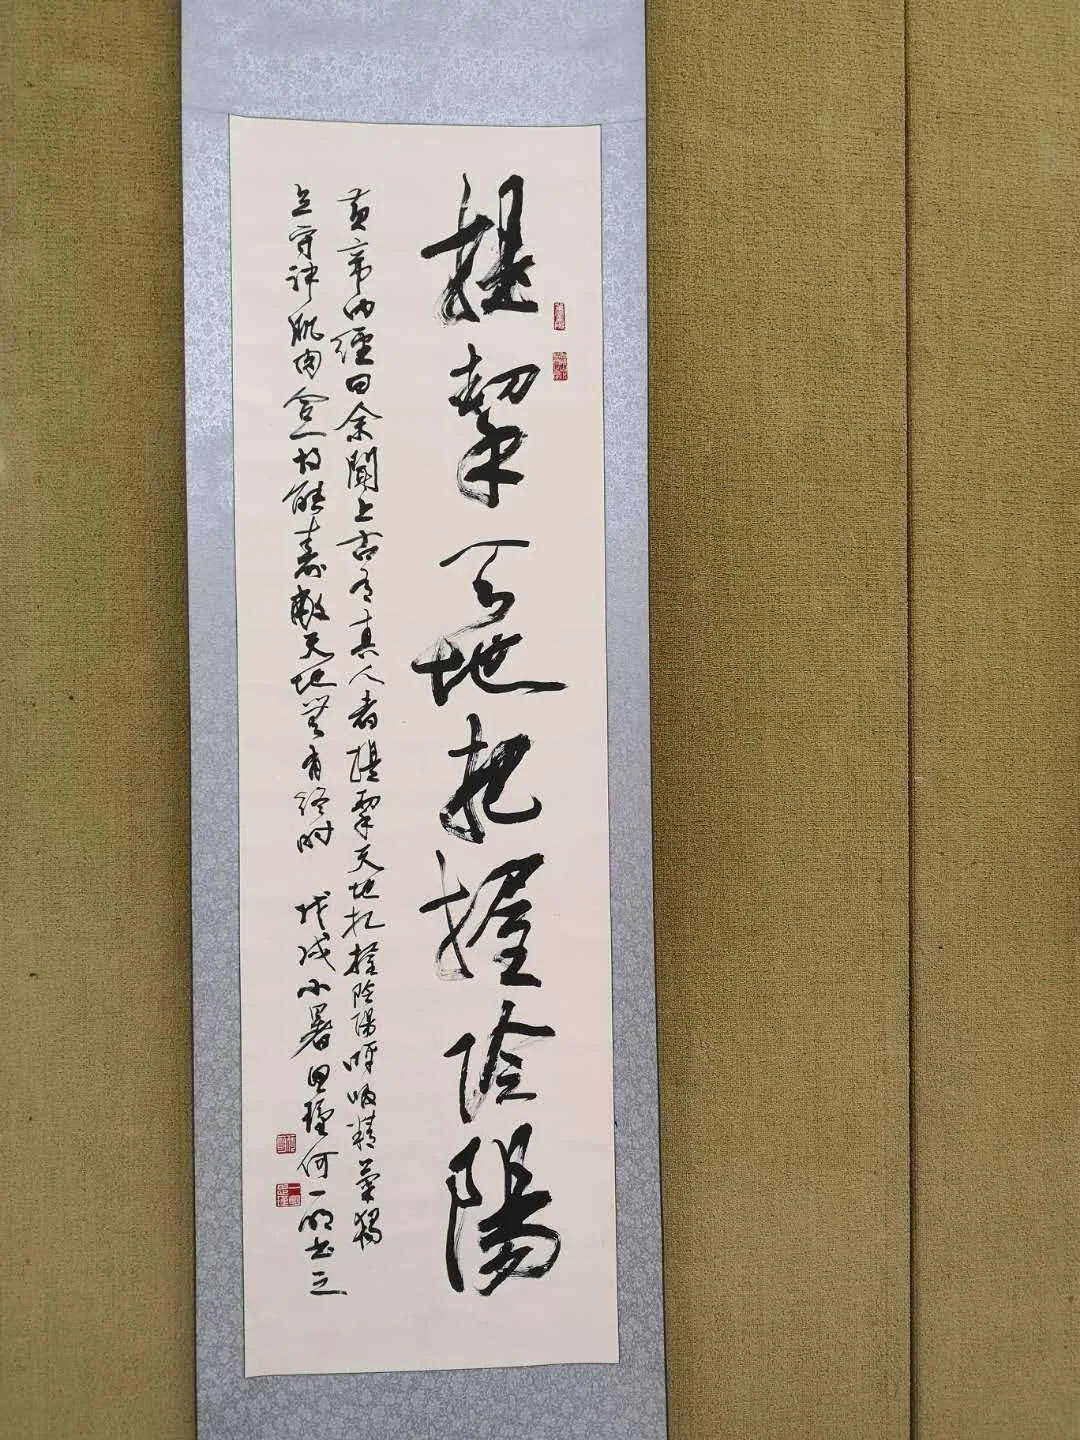 提挈天地把握陰陽
黄帝内經曰余聞上古有真人者提挈天地把握陰陽呼吸精氣獨
立守神肌肉合一故能壽敝天地無有终时 戊戌小暑 何一明书之